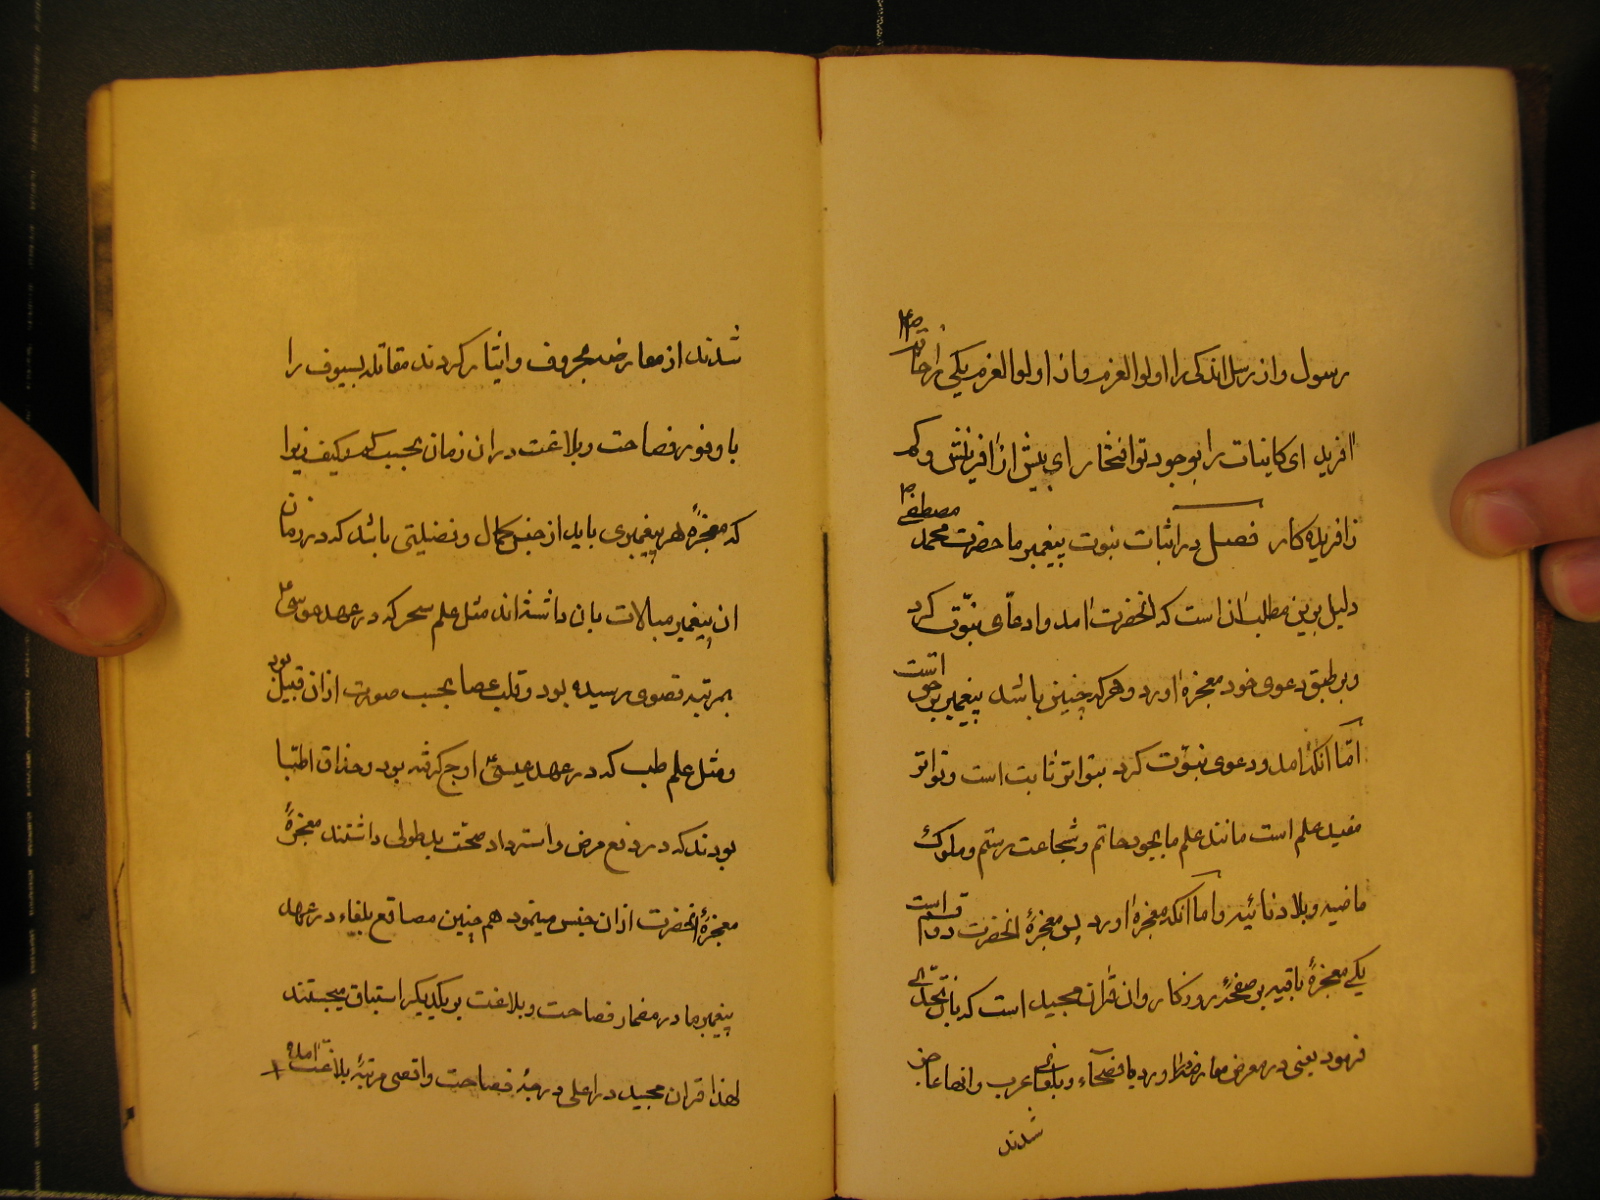 رسول و از رسل اندکی را اولوالعزم و از اولوالعزم یکی را خاتم
آفرید ای کاینات را بوجود تو افتخار ای بیش از آفرینش و کم
ز آفریده کار فصل در اثبات نبوت پیغمبر ما حضرت محمد مصطفی ص
دلیل برین مطلب آن است که آنحضرت آمد و ادعای نبوّت کرد
و بر طبق دعوی خود معجزه آورد و هر که چنین باشد پیغمبر بر حق است
امّا آنکه آمد و دعوی نبوّت کرد بتواتر ثابت است و تواتر
مفید علم است مانند علم ما بجود حاتم و شجاعت رستم و ملوک
ماضیه و بلاد نائیه و اما آنکه معجزه آورد پس معجزهٔ آنحضرت دو قسم است
یکی معجزهٔ باقیه بر صفحهٔ روزگار و ان قرآن مجید است که بان تحدّی
فرمود یعنی در معرض معارضه آورد با فصحاء و بلغای عرب و انها عاجز
شدند
شدند از معارضه بحروف و ایثار کردند مقاتله بسیوف را
با وفور فصاحت و بلاغت در ان زمان بحسب کم و کیف زیرا
که معجزهٔ هر پیغمبری باید از جنس کمال و فضیلتی باشد که در زمان
ان پیغمبر مبالات بان داشته‌اند مثل علم سحر که در عهد موسی ع
بمرتبه قصوی رسیده بود و قلب عصا بحسب صورت از ان قبیل بود
و مثل علم طب که در عهد عیسی ع اوج گرفته بود و حذاق اطبّا
بودند که در رفع مرض و استرداد صحّت ید طولی داشتند معجزهٔ
معجزهٔ آنحضرت از ان جنس مینمود هم چنین مصاقع بلغاء در عهد
پیغمبر ما در مضمار فصاحت و بلاغت بر یکدیگر استباق میجستند
لهذا قران مجید در اعلی درجهٔ فصاحت و اقصی مرتبهٔ بلاغت آمده